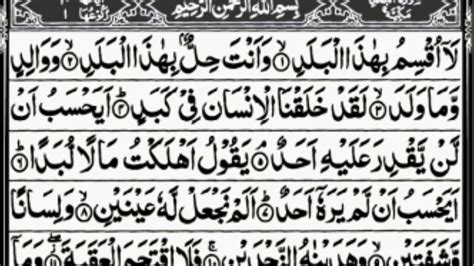 بِسْمِ اللّٰهِ الرَّحْمٰنِ الرَّحِيْمِ
لَاۤ اُقْسِمُ بِهٰذَا الْبَلَدِ ۙ﴿۱﴾ وَاَنْتَ حِلٌّۢ بِهٰذَا الْبَلَدِ ۙ﴿۲﴾ وَوَالِدٍ
وَّمَا وَلَدَ ۙ﴿۳﴾ لَقَدْ خَلَقْنَا الْاِنْسَانَ فِیْ كَبَدٍ ؕ﴿۴﴾ اَیَحْسَبُ اَنْ
لَّنْ یَّقْدِرَ عَلَیْهِ اَحَدٌ ۘ﴿۵﴾ یَقُوْلُ اَهْلَكْتُ مَالًا لُّبَدًا ؕ﴿۶﴾
اَیَحْسَبُ اَنْ لَّمْ یَرَهٗۤ اَحَدٌ ؕ﴿۷﴾ اَلَمْ نَجْعَلْ لَّهٗ عَیْنَیْنِ ۙ﴿۸﴾ وَلِسَانًا
وَّشَفَتَیْنِ ۙ﴿۹﴾ وَهَدَیْنٰهُ النَّجْدَیْنِ ۚ﴿۱۰﴾ فَلَا اقْتَحَمَ الْعَقَبَةَ ؗۖ﴿۱۱﴾ وَمَاۤ